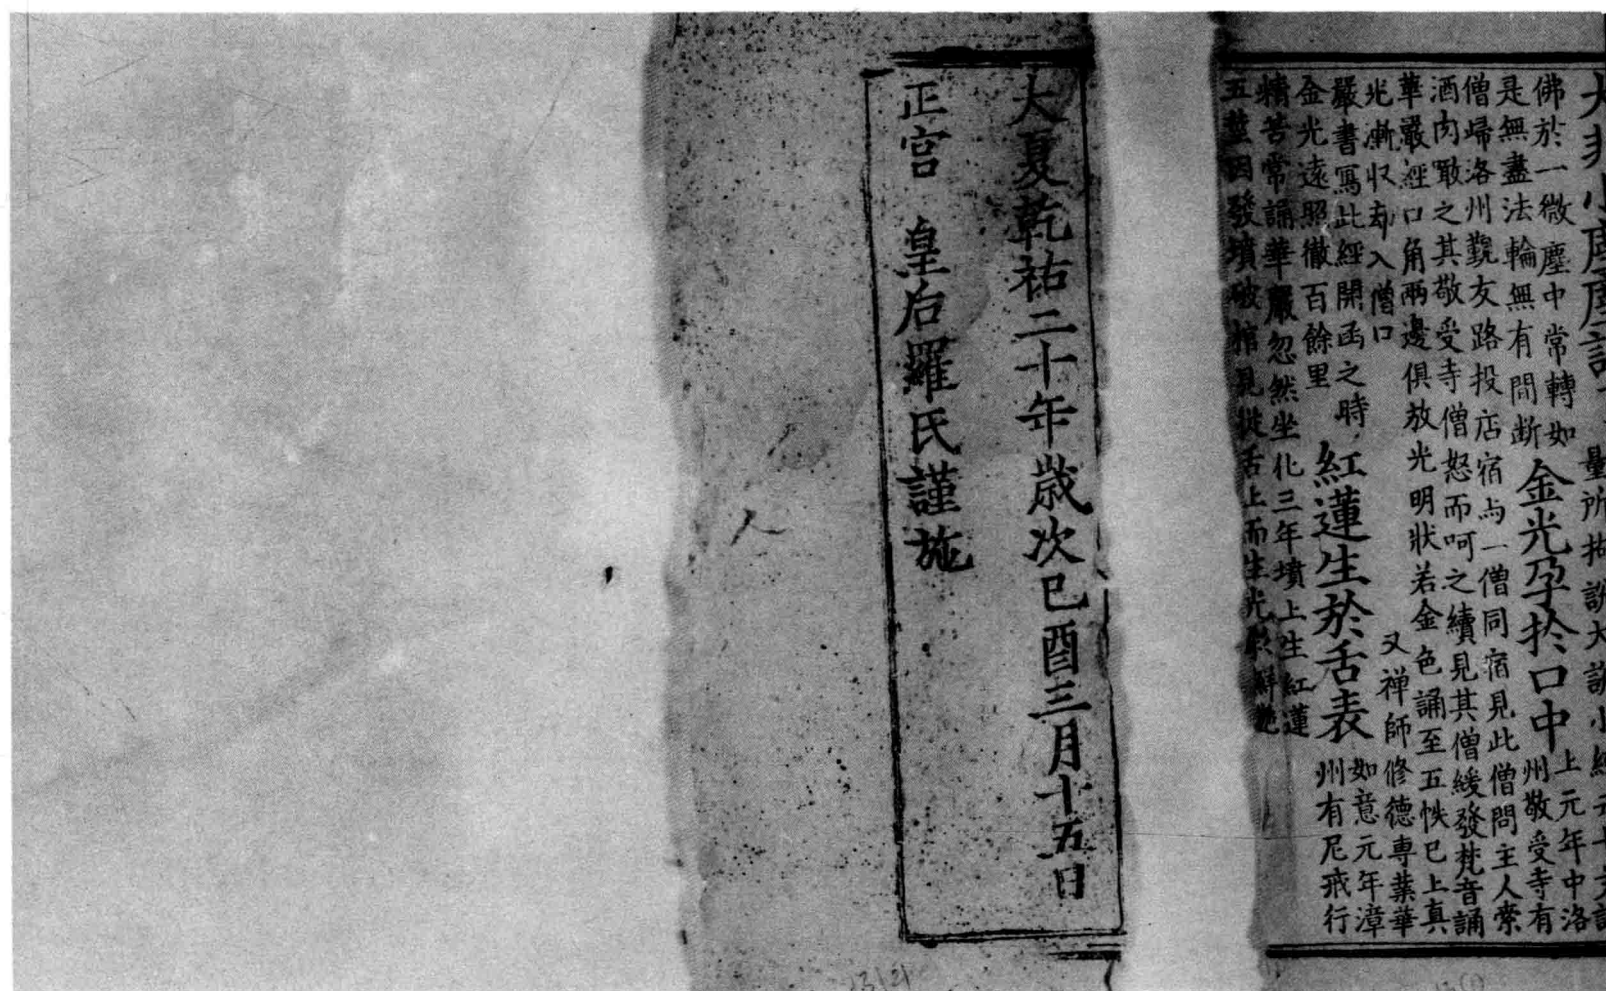 大非小塵塵說
量所拘說大說小經云十方諸
佛於一微塵中常轉如
是無盡法輪無有間断
金光孕於口中
上元年中洛
州敬受寺有
僧歸洛州覲友路投店宿与一僧同宿見此僧問主人索
酒肉噉之其敬受寺僧怒而呵之續見其僧緩發梵音誦
華嚴經口角兩邊俱放光明狀若金色誦至五帙已上真
光漸収却入僧口 又禅師修德專葉華
嚴書寫此經開函之時
金光遠照徹百餘里
紅蓮生於舌表
如意元年漳
州有尼戒行
精苦常誦華嚴忽然坐化三年墳上生紅蓮
五莖因發墳破棺見從舌上而生光彩鮮艷
大夏乾祐二十年歲次己酉三月十五日
正宮 皇后羅氏謹施
人